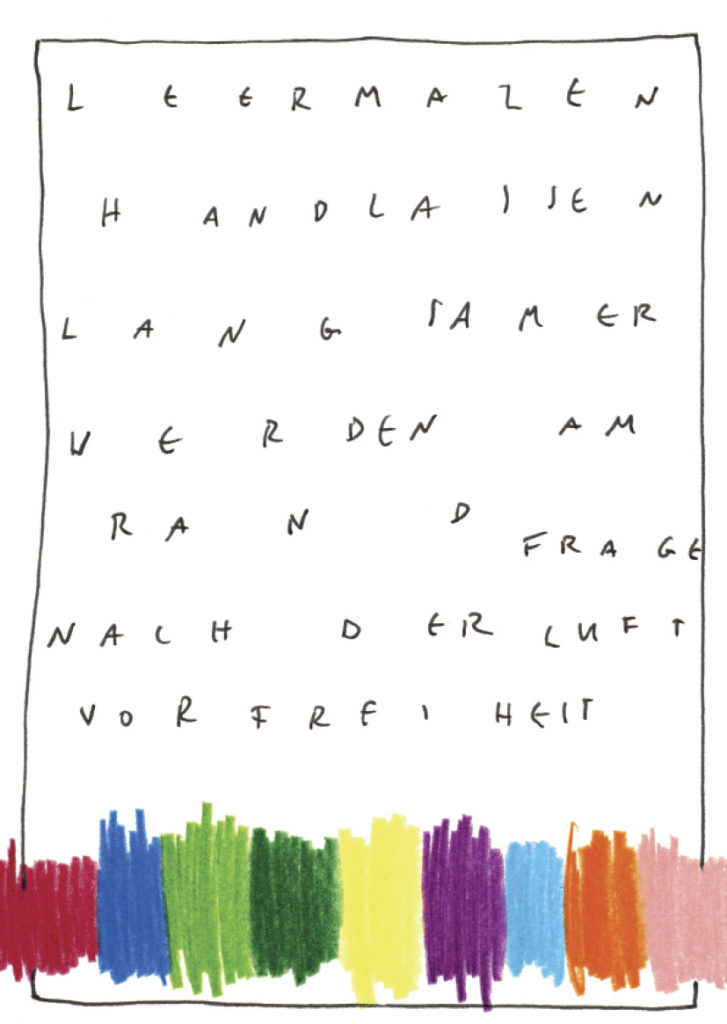 LEERMAZEN
HANDLASSEN
LANGSAMER
WERDEN AM
RAND FRAGE
NACH DER LUFT
VOR FREIHEIT